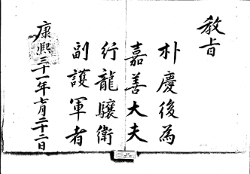 敎旨
朴慶後為
嘉善大夫
行龍驤衛
副護軍者
康熙三十一年七月二十二日